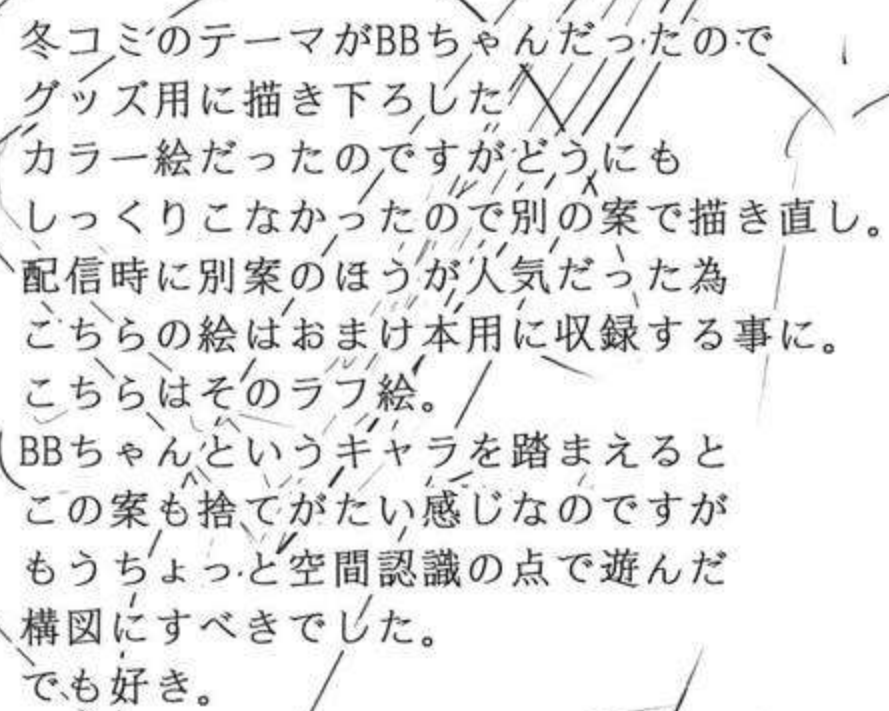 冬コミのテーマがBBちゃんだったので
グッズ用に描き下ろした
カラー絵だったのですがどうにも
しっくりこなかったので別の案で描き直し。
配信時に別案のほうが人気だった為
こちらの絵はおまけ本用に収録する事に。
こちらはそのラフ絵。
BBちゃんというキャラを踏まえると
この案も捨てがたい感じなのですが
もうちょっと空間認識の点で遊んだ
構図にすべきでした。
でも好き。